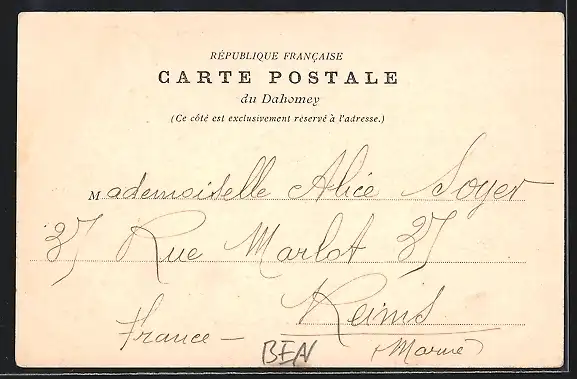 RÉPUBLIQUE FRANÇAISE
CARTE POSTALE
du Dahomey
(Ce côté est exclusivement réservé à l'adresse.)
Mademoiselle Alice Soyer
37 Rue Marlot 37
Reims
France - (Marne)
BEN